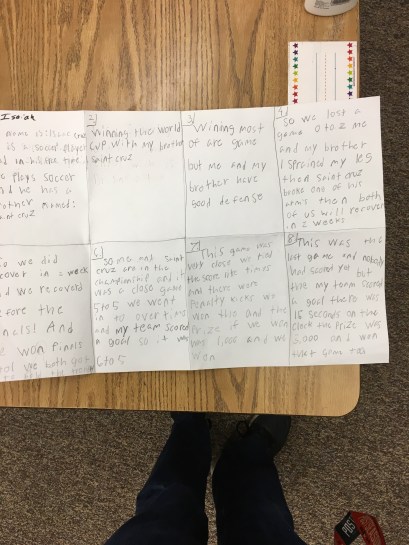 Isaiah
name is
is a soccer player
plays soccer
and he has a
brother named:
saint cruz
2)
Winning the world
cup with my brother
saint cruz
3)
Wining most
of are game
but me and my
brother have
good defense
4)
So we lost a
game 0 to 2 me
and my brother
I sprained my leg
then saint cruz
broke one of his
arms then both
of us will recover
in 2 weeks
so we did
recover in 2 week
and we recoverd
before the
finals! And
we won finals
we both got
6)
so me and saint
cruz are in the
championship and it
was a close game
5 to 5 we went
in to over time
and my team scored
a goal so it was
6 to 5
7)
This game was
very close we tied
the score times
and there were
penalty kicks we
won this and the
prize if we won
was 1,000 and we
won
8)
This was the
last game and nobody
had scored yet but
then my team scored
a goal there was
15 seconds on the
clock the prize was
2,000 and I won
that game too